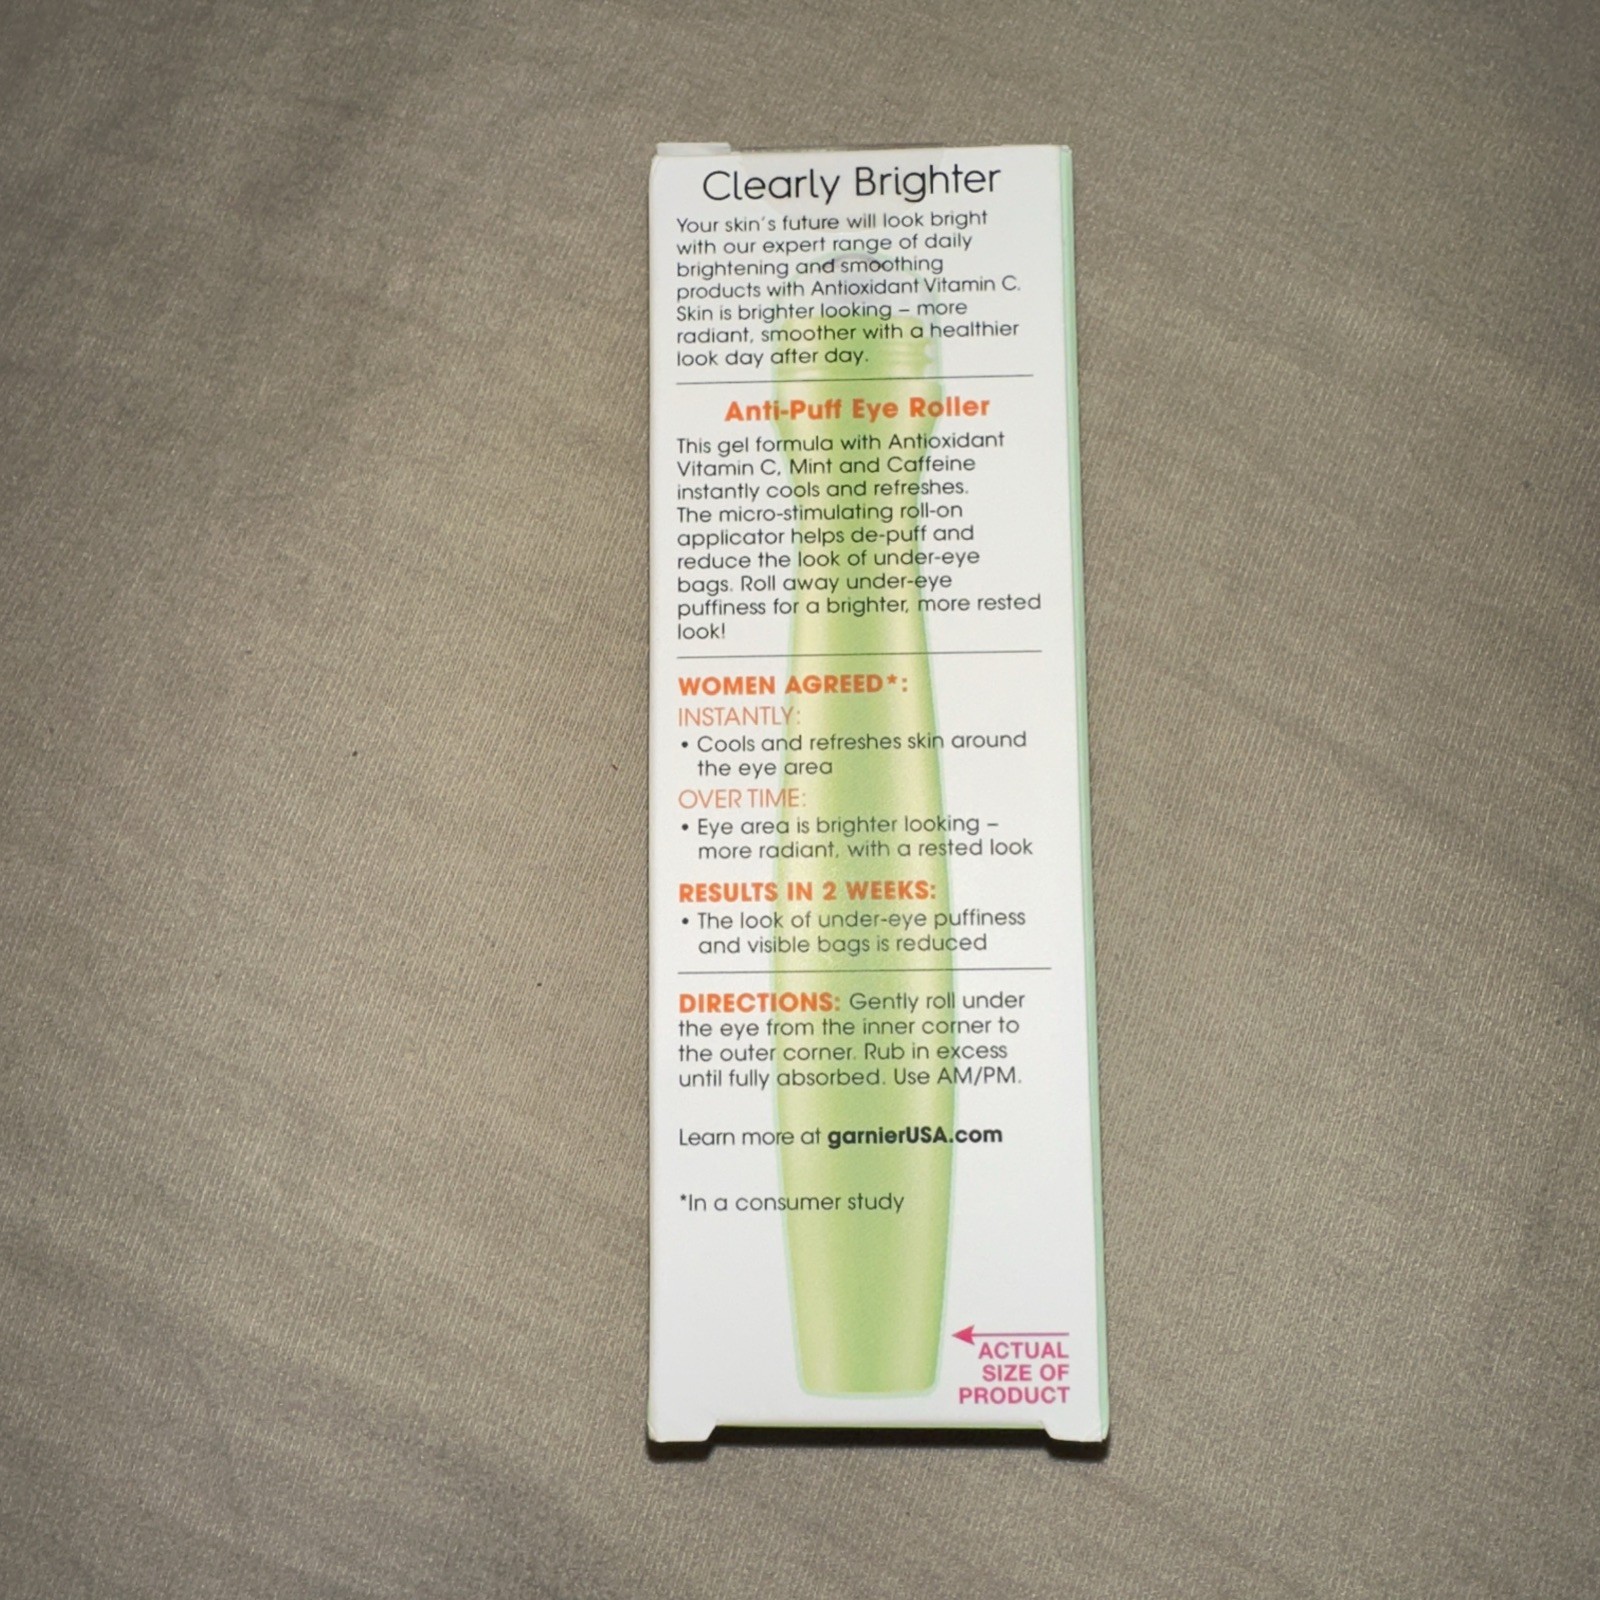 Clearly Brighter
Your skin's future will look bright
with our expert range of daily
brightening and smoothing
products with Antioxidant Vitamin C.
Skin is brighter looking – more
radiant, smoother with a healthier
look day after day.
Anti-Puff Eye Roller
This gel formula with Antioxidant
Vitamin C, Mint and Caffeine
instantly cools and refreshes.
The micro-stimulating roll-on
applicator helps de-puff and
reduce the look of under-eye
bags. Roll away under-eye
puffiness for a brighter, more rested
look!
WOMEN AGREED*:
INSTANTLY:
• Cools and refreshes skin around
the eye area
OVER TIME:
• Eye area is brighter looking –
more radiant, with a rested look
RESULTS IN 2 WEEKS:
• The look of under-eye puffiness
and visible bags is reduced
DIRECTIONS: Gently roll under
the eye from the inner corner to
the outer corner. Rub in excess
until fully absorbed. Use AM/PM.
Learn more at garnierUSA.com
*In a consumer study
ACTUAL
SIZE OF
PRODUCT